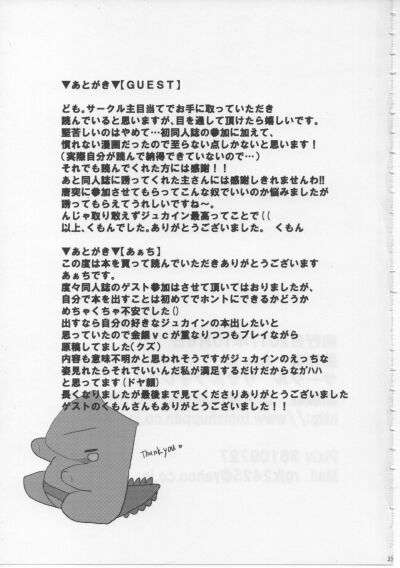 ▼あとがき▼【GUEST】
ども。サークル主目当てでお手に取っていただき
読んでいると思いますが、目を通して頂けたら嬉しいです。
堅苦しいのはやめて…初同人誌の参加に加えて、
慣れない漫画だったので至らない点しかないと思います！
(実際自分が読んで納得できていないので…)
それでも読んでくれた方には感謝！！
あと同人誌に誘ってくれた主さんには感謝しきれませんわ!!
唐突に参加させてもらってこんな奴でいいのか悩みましたが
誘ってもらえてうれしいですね～。
んじゃ取り敢えずジュカイン最高ってことで((
以上、くもんでした。ありがとうございました。 くもん
▼あとがき▼【あぁち】
この度は本を買って読んでいただきありがとうございます
あぁちです。
度々同人誌のゲスト参加はさせて頂いてはおりましたが、
自分で本を出すことは初めてでホントにできるかどうか
めちゃくちゃ不安でした()
出すなら自分の好きなジュカインの本出したいと
思っていたので金銀vcが重なりつつもプレイながら
原稿してました(クズ)
内容も意味不明かと思われそうですがジュカインのえっちな
姿見れたらそれでいいんだ私が満足するだけだからなｶﾞﾊﾊ
と思ってます(ドヤ顔)
長くなりましたが最後まで見てくださりありがとうございました
ゲストのくもんさんもありがとうございました！！
Thank you